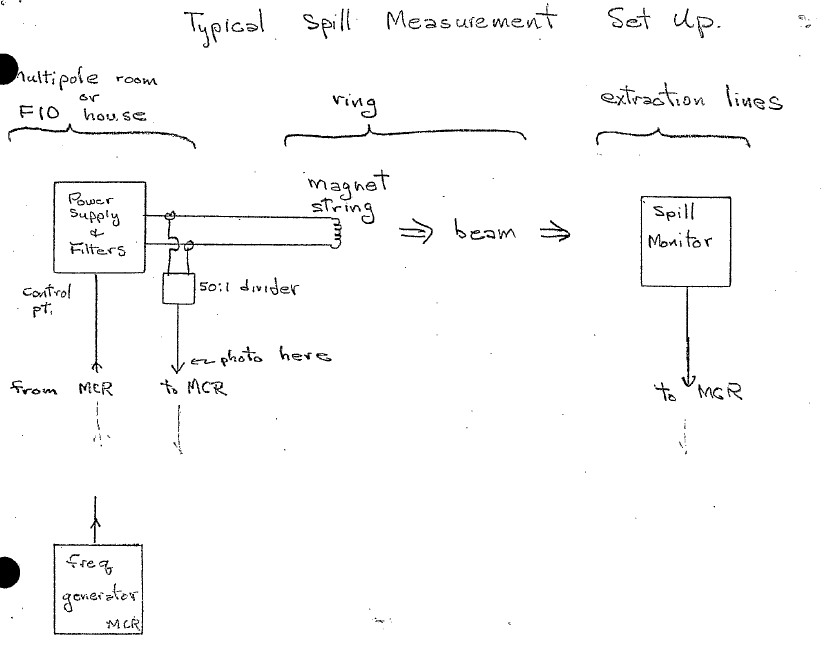 Typical Spill Measurement Set Up.
Multipole room
or
F10 house
ring
extraction lines
magnet
string
Power
Supply
&
Filters
⇒ beam ⇒
Spill
Monitor
50:1 divider
control
pt.
← photo here
from MCR
to MCR
to MCR
freq
generator
MCR